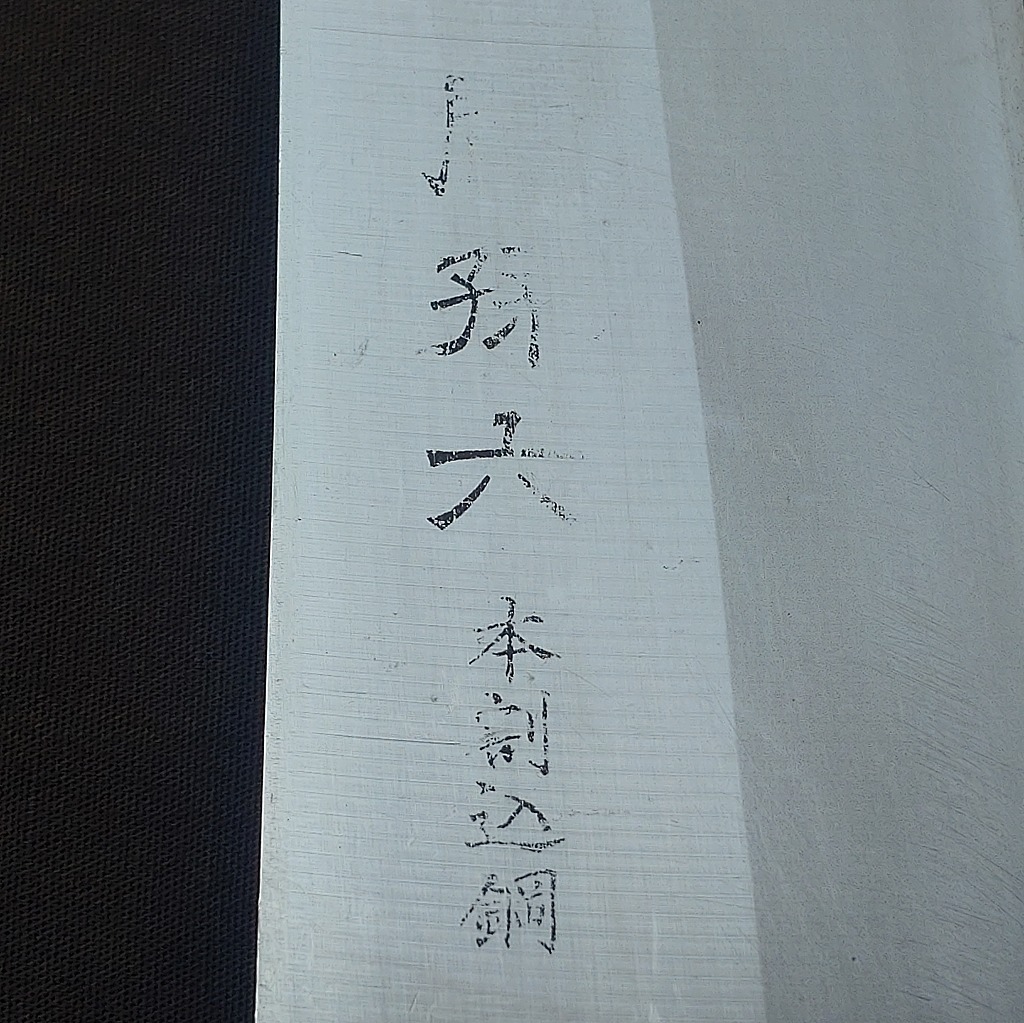 孫六本割込鋼